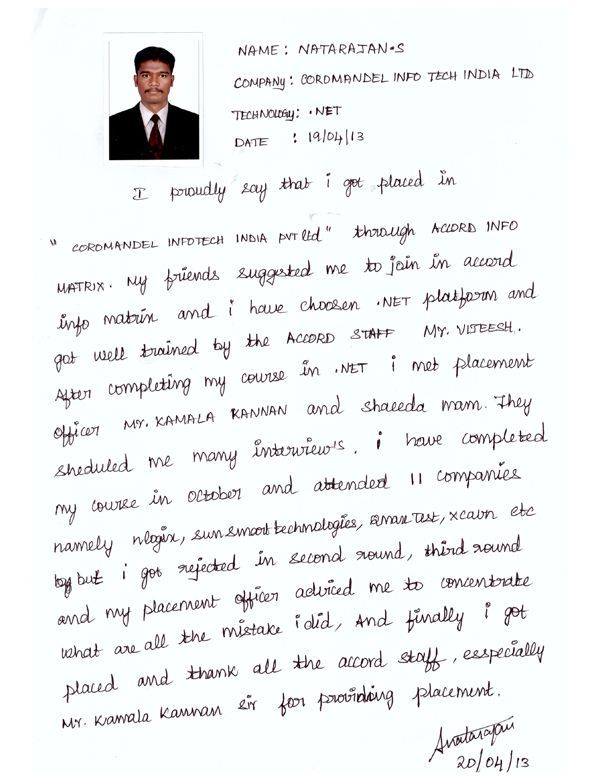 NAME : NATARAJAN.S
COMPANY : COROMANDEL INFO TECH INDIA LTD
TECHNOLOGY : .NET
DATE : 19/04/13
I proudly say that i got placed in
"COROMANDEL INFOTECH INDIA PVT Ltd" through ACCORD INFO
MATRIX. My friends suggested me to join in accord
info matrix and i have choosen .NET platform and
got well trained by the ACCORD STAFF MR. VITEESH.
After completing my course in .NET i met placement
officer MR. KAMALA KANNAN and shaeeda mam. They
sheduled me many interview's. i have completed
my course in october and attended 11 companies
namely nlogix, sunsmart technologies, Qmax Test, xcavn etc
but i got rejected in second round, third round
and my placement officer adviced me to concentrate
what are all the mistake i did, And finally i got
placed and thank all the accord staff, esspecially
Mr. Kamala Kannan sir for providing placement.
SNatarajan
20/04/13